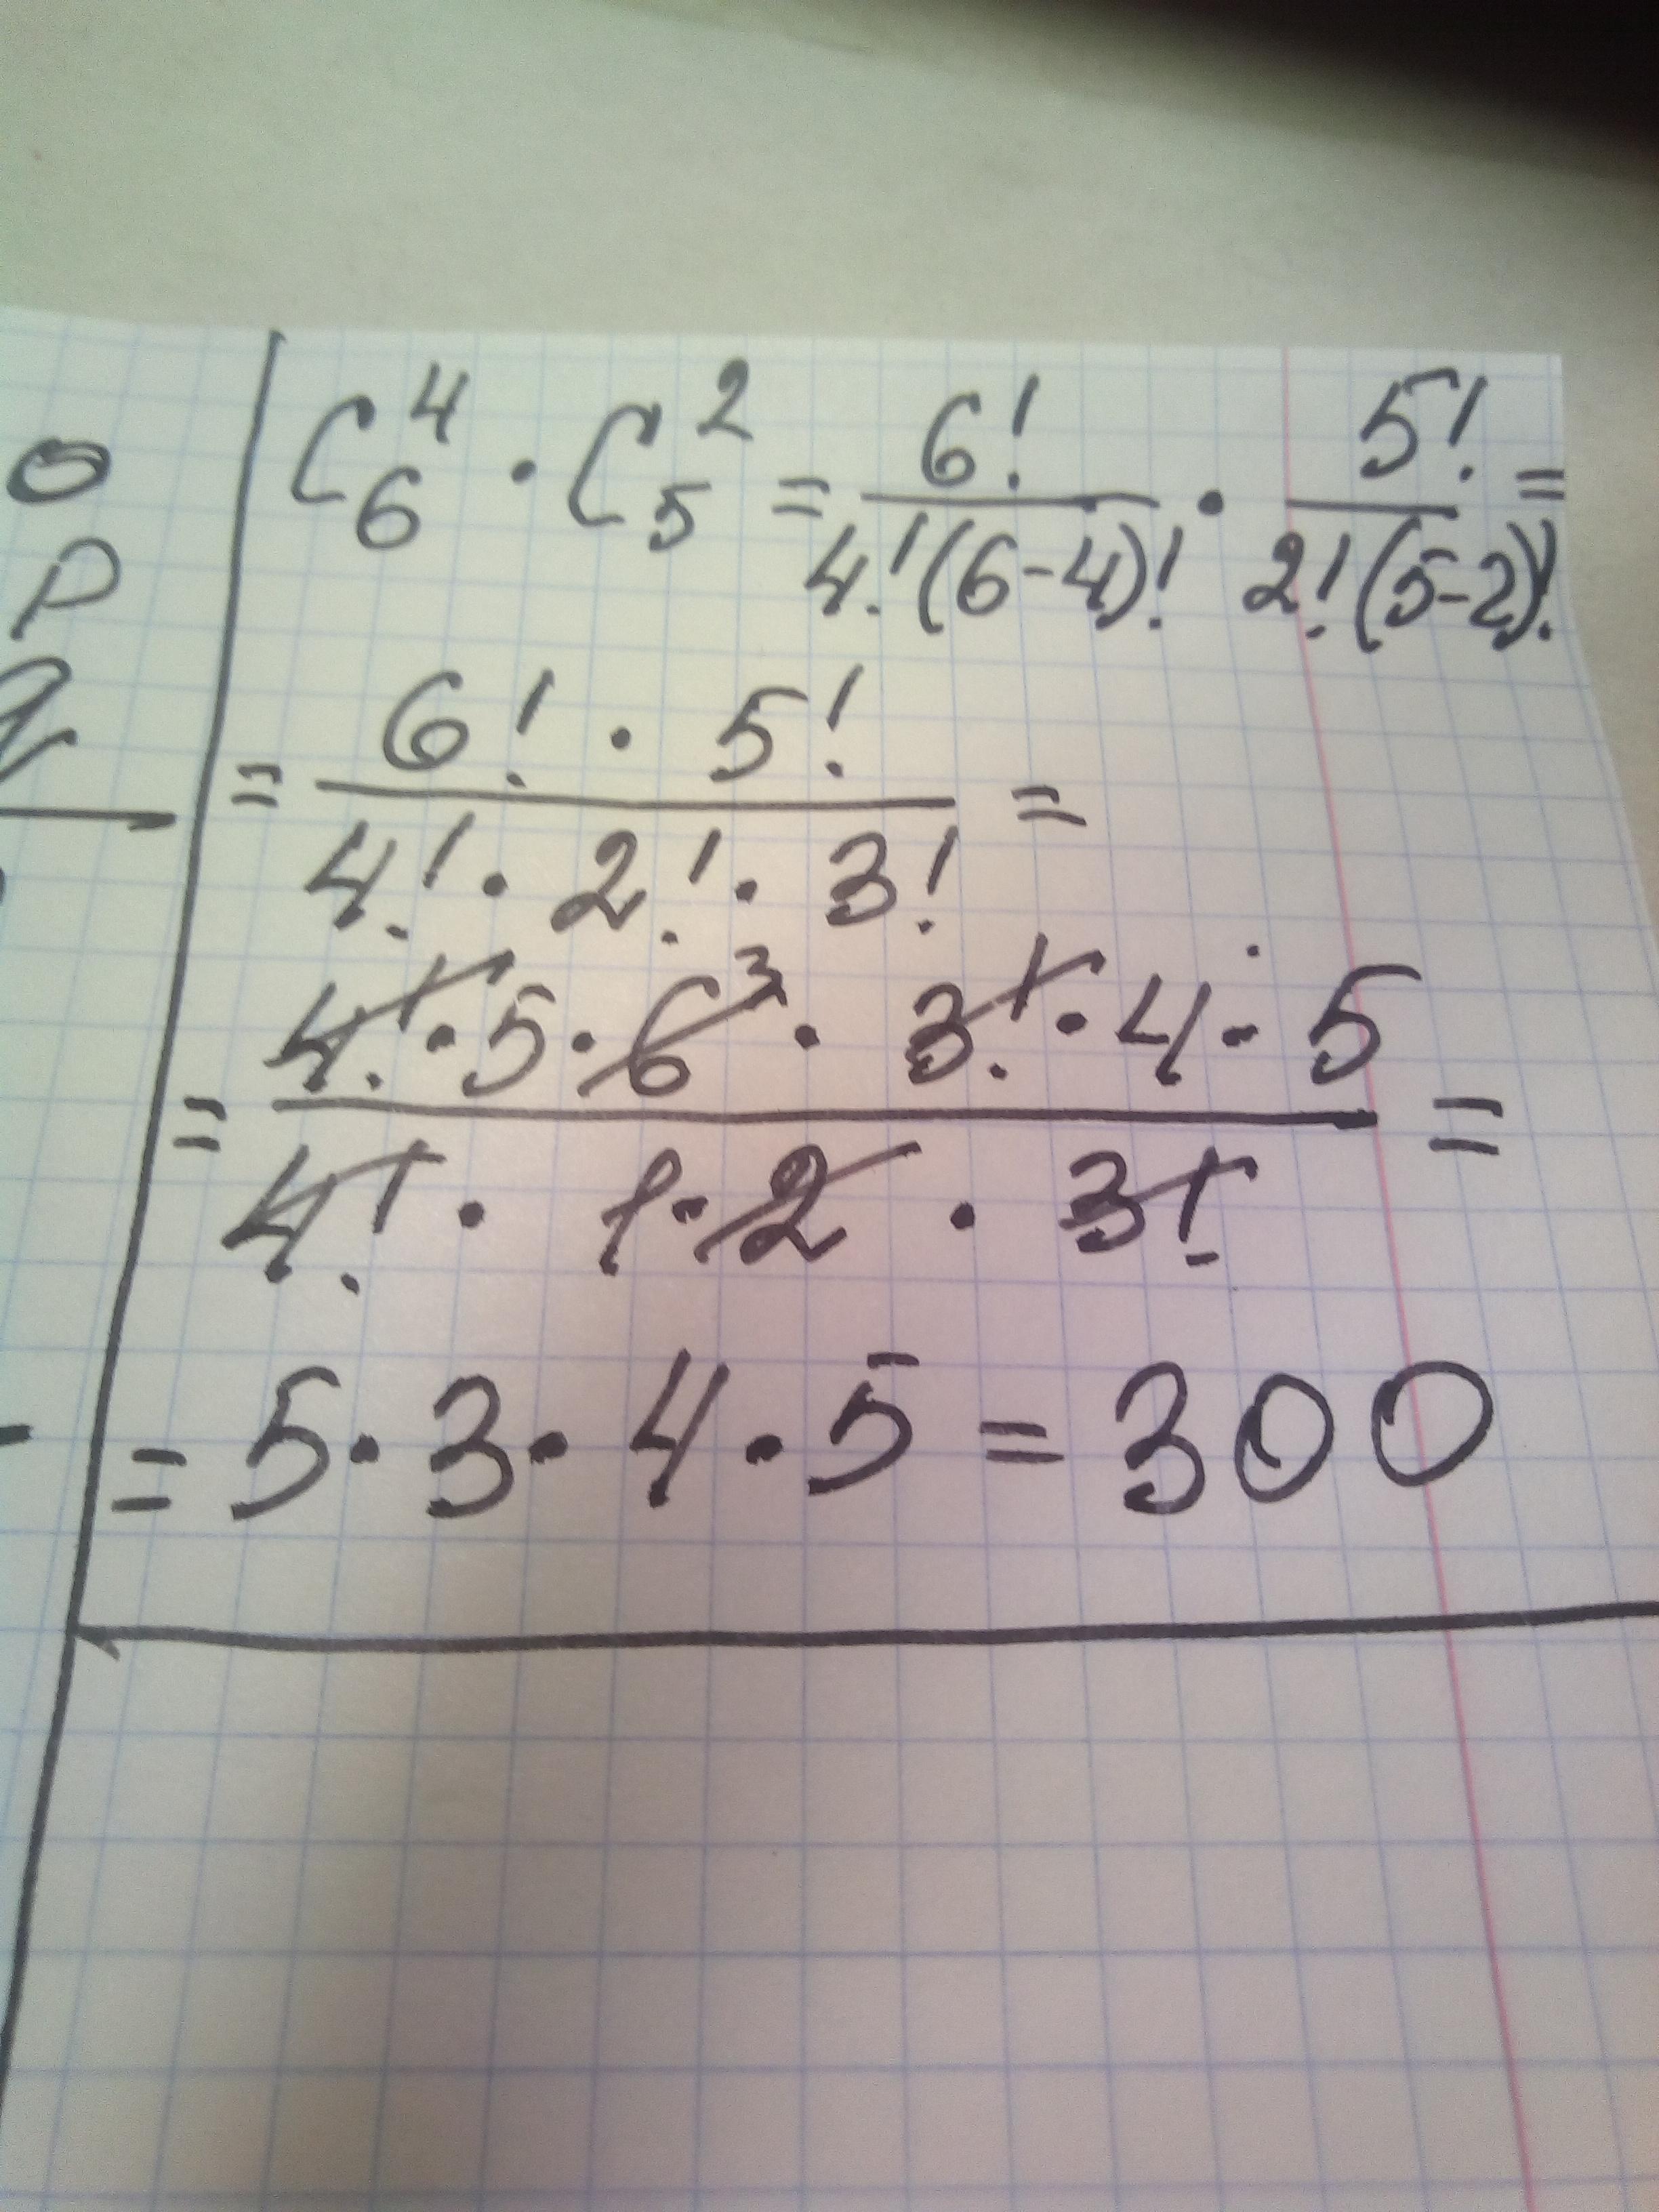 C₆⁴ · C₅² = 6! / 4!(6-4)! · 5! / 2!(5-2)! =
= 6! · 5! / 4! · 2! · 3! =
= 4! · 5 · 6 ³ · 3! · 4 · 5 / 4! · 1 · 2 · 3! =
= 5 · 3 · 4 · 5 = 300